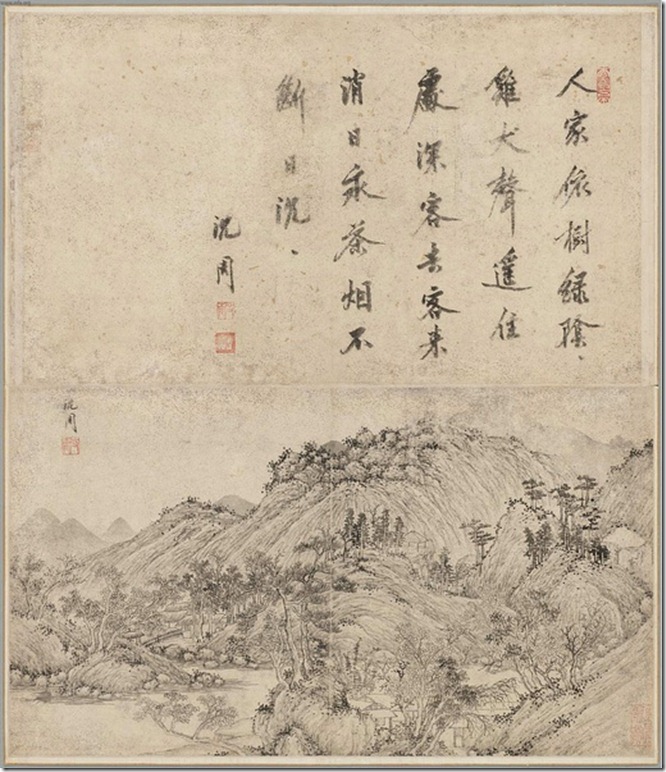 人家依樹綠陰、
雞犬聲遥住
處深客去客来
消日永茶烟不
斷日沉、
沈周
沈周